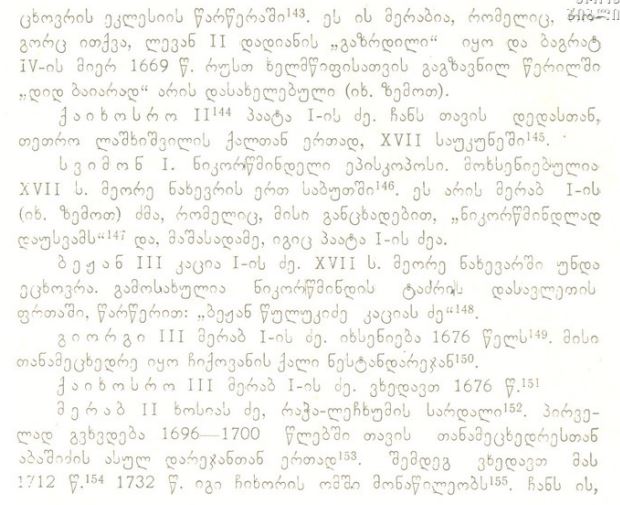 ცხოვრის ეკლესიის წარწერაში¹⁴³. ეს ის მერაბია, რომელიც, რო-
გორც ითქვა, ლევან II დადიანის „გაზრდილი“ იყო და ბაგრატ
IV-ის მიერ 1669 წ. რუსთ ხელმწიფისათვის გაგზავნილ წერილში
„დიდ ბაიარად“ არის დასახელებული (იხ. ზემოთ).
ქაიხოსრო II¹⁴⁴ პაატა I-ის ძე. ჩანს თავის დედასთან,
თეთრო ლაშხიშვილის ქალთან ერთად, XVII საუკუნეში¹⁴⁵.
სვიმონ I. ნიკორწმინდელი ეპისკოპოსი. მოხსენიებულია
XVII ს. მეორე ნახევრის ერთ საბუთში¹⁴⁶. ეს არის მერაბ I-ის
(იხ. ზემოთ) ძმა, რომელიც, მისი განცხადებით, „ნიკორწმინდლად
დაუსვამს“¹⁴⁷ და, მაშასადამე, იგიც პაატა I-ის ძეა.
ბეჟან III კაცია I-ის ძე. XVII ს. მეორე ნახევარში უნდა
ეცხოვრა. გამოსახულია ნიკორწმინდის ტაძრის დასავლეთის
ფრთაში, წარწერით: „ბეჟან წულუკიძე კაციას ძე“¹⁴⁸.
გიორგი III მერაბ I-ის ძე. იხსენიება 1676 წელს¹⁴⁹. მისი
თანამეცხედრე იყო ჩიქოვანის ქალი ნესტანდარეჯან¹⁵⁰.
ქაიხოსრო III მერაბ I-ის ძე. ვხედავთ 1676 წ.¹⁵¹
მერაბ II ხოსიას ძე, რაჭა-ლეჩხუმის სარდალი¹⁵². პირვე-
ლად გვხვდება 1696—1700 წლებში თავის თანამეცხედრესთან
აბაშიძის ასულ დარეჯანთან ერთად¹⁵³. შემდეგ ვხედავთ მას
1712 წ.¹⁵⁴ 1732 წ. იგი ჩიხორის ომში მონაწილეობს¹⁵⁵. ჩანს ის,